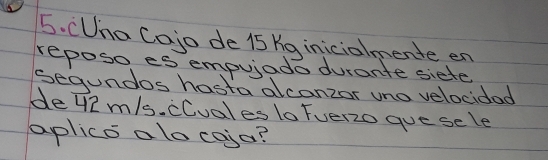 5.¿Una Caja de 15 Kg inicialmente en
reposo es empujada durante siete
segundos hasta alcanzar una velocidad
de 42 m/s. ¿Cual es la fuerza que se le
aplicó a la caja?